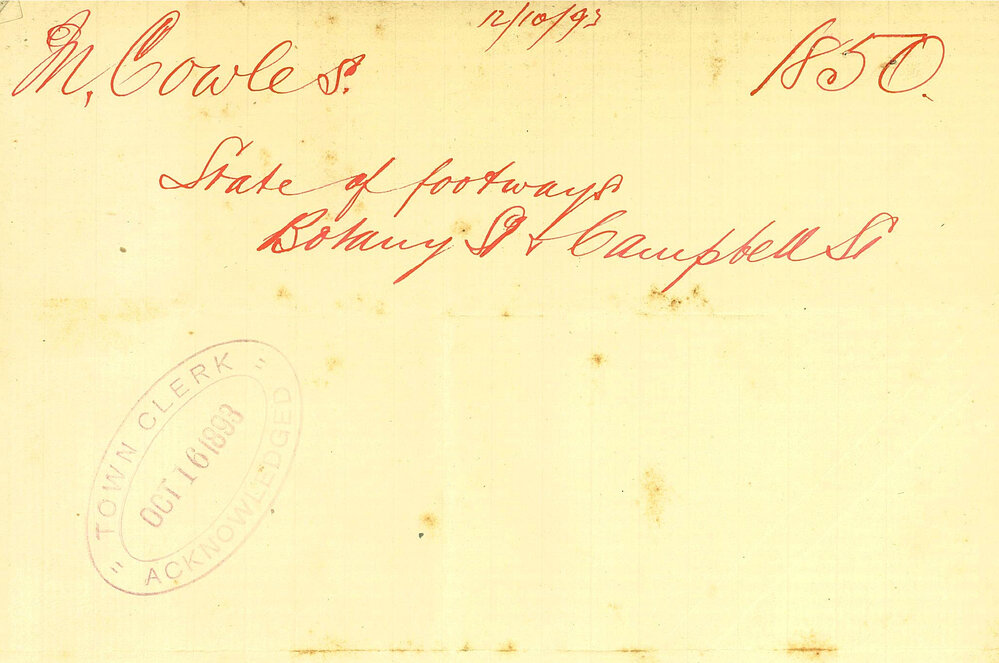 12/10/93
M. Cowles. 1850.
State of footways
Botany St & Campbell St
"TOWN CLERK"
OCT 16 1893
ACKNOWLEDGED